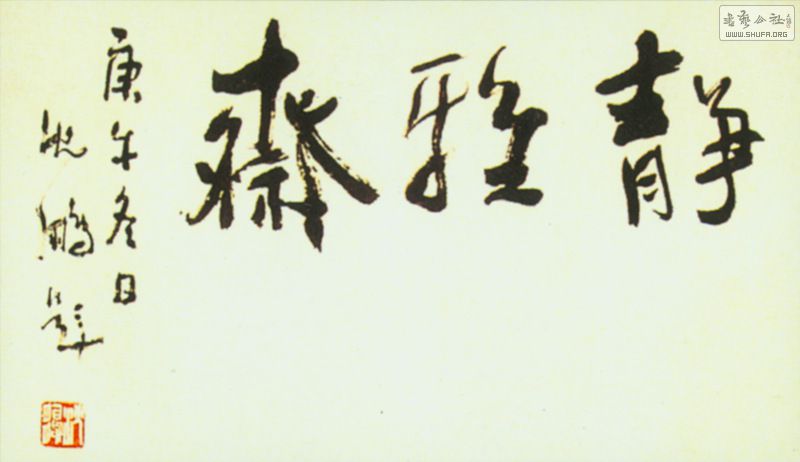 静雅斋
庚午冬日
沈鹏题
书艺公社
WWW.SHUFA.ORG